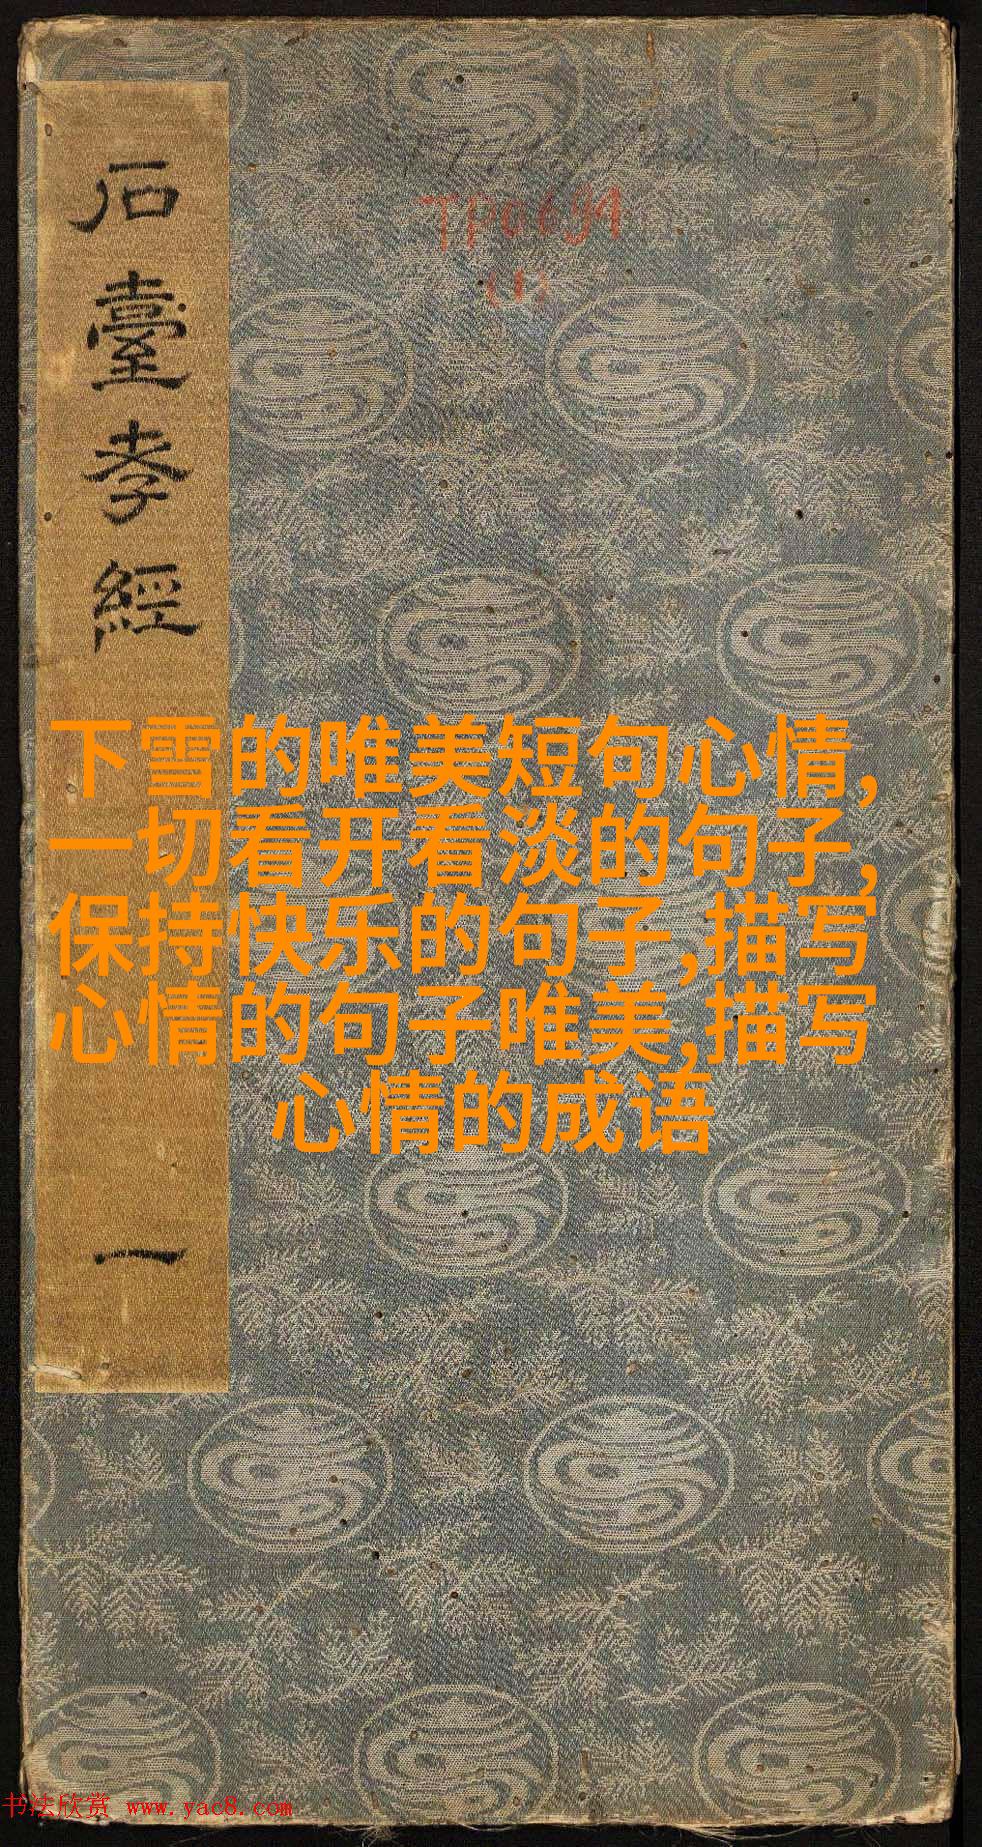 石臺孝經
一
TP0691
(1)
下雪的唯美短句心情,
一切看开看淡的句子,
保持快乐的句子,描写
心情的句子唯美,描写
心情的成语
书法欣赏 www.yac8.com